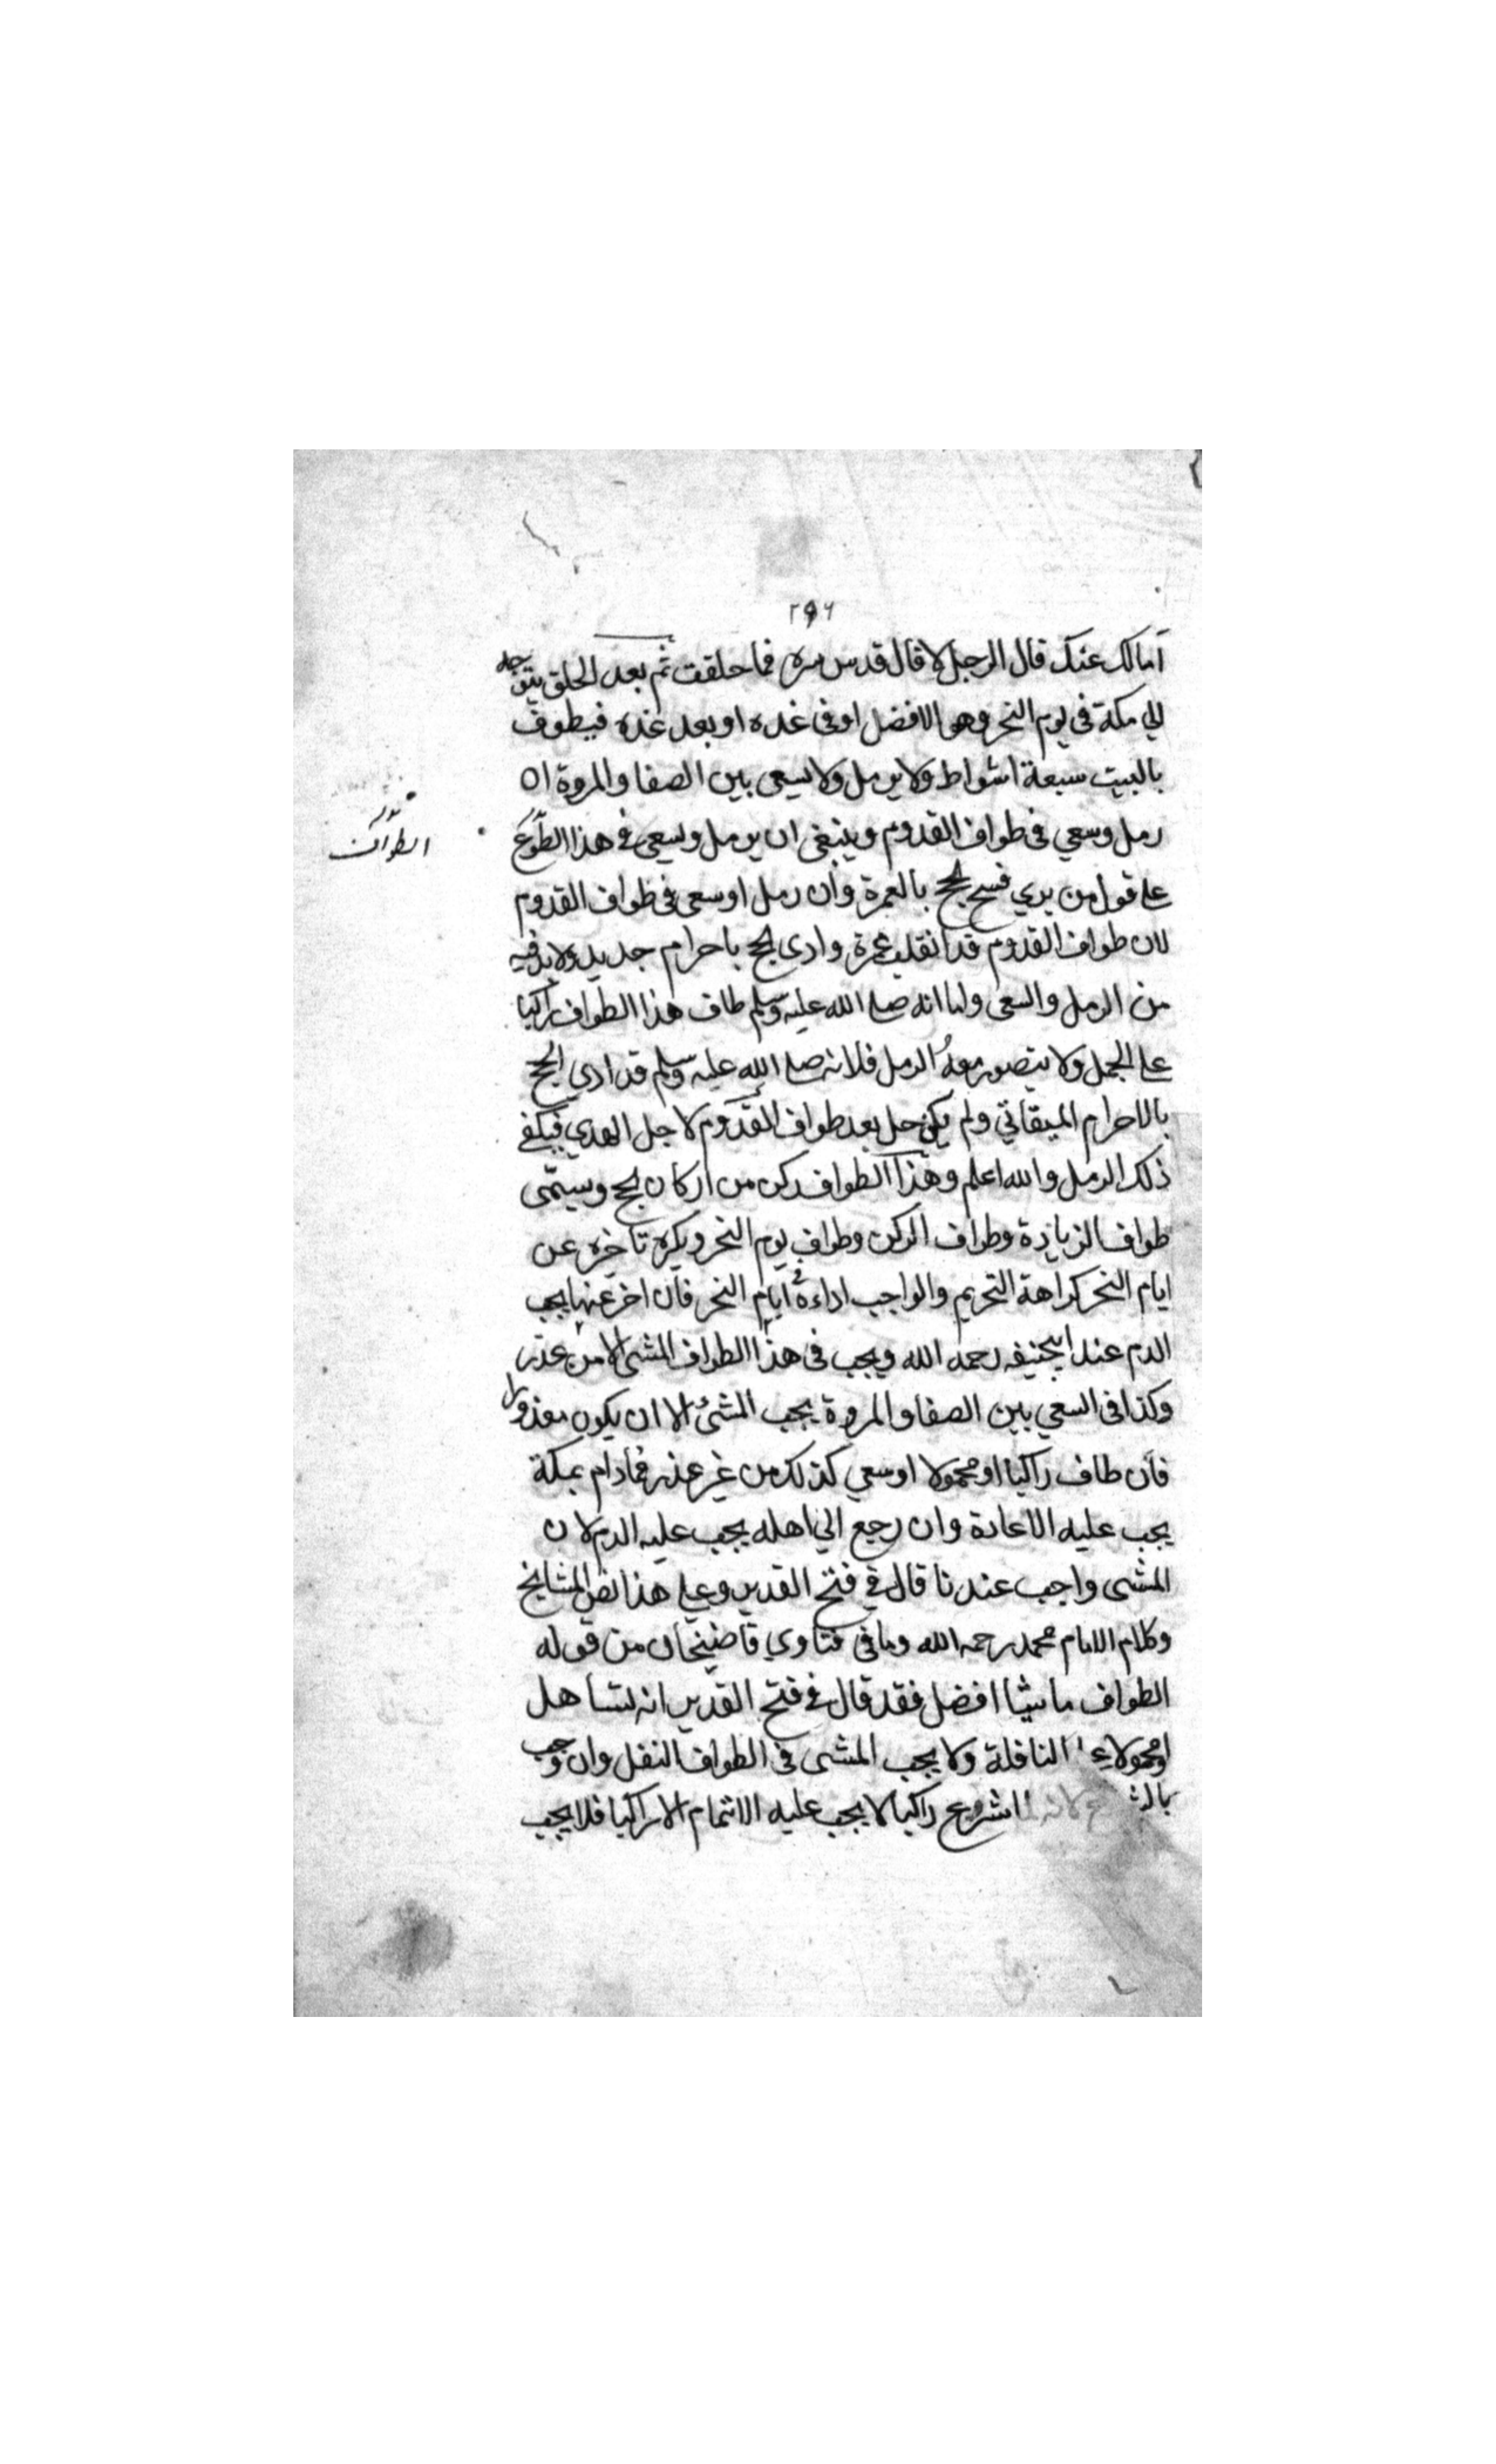 ٢٩٦
آمالك عنك قال الرجل لا قال قدس سره فما حلقت ثم بعد الحلق يتوجه
الي مكة في يوم النحر وهو الافضل او في غده او بعد غده فيطوف
بالبيت سبعة اشواط ولا يرمل ولا يسعى بين الصفا والمروة ان
رمل وسعي في طواف القدوم وينبغى ان يرمل ويسعى في هذا
الطواف
على قول من يري فسخ الحج بالعمرة وان رمل او سعى في طواف القدوم
لان طواف القدوم قد انقلب عمرة وادى الحج باحرام جديد ولا بد فيه
من الرمل والسعى واما انه صلى الله عليه وسلم طاف هذا الطواف راكبا
على الجمل ولا يتصور معه الرمل فلانه صلى الله عليه وسلم قد ادي الحج
بالاحرام الميقاتي ولم يكن حل بعد طواف القدوم لاجل الهدي فيكفى
ذلك الرمل والله اعلم وهذا الطواف ركن من اركان الحج ويسمى
طواف الزيارة وطواف الركن وطواف يوم النحر ويكره تاخيره عن
ايام النحر كراهة التحريم والواجب اداءه في ايام النحر فان اخر عنها يجب
الدم عند ابيحنيفه رحمه الله ويجب في هذا الطواف المشى الا من عذر
وكذا في السعي بين الصفا والمروة يجب المشئ الا ان يكون معذورا
فان طاف راكبا او محمولا او سعي كذلك من غير عذر فمادام بمكة
يجب عليه الاعادة وان رجع الي اهله يجب عليه الدم لان
المشى واجب عندنا قال في فتح القدير وعلى هذا نص المشايخ
وكلام الامام محمد رحمه الله وما في فتاوي قاضيخان من قوله
الطواف ماشيا افضل فقد قال في فتح القدير انه تساهل
او محمولا النافلة ولا يجب المشى في الطواف النفل وان وجب
لانه شروع راكبا لا يجب عليه الاتمام الا راكبا فلا يجب